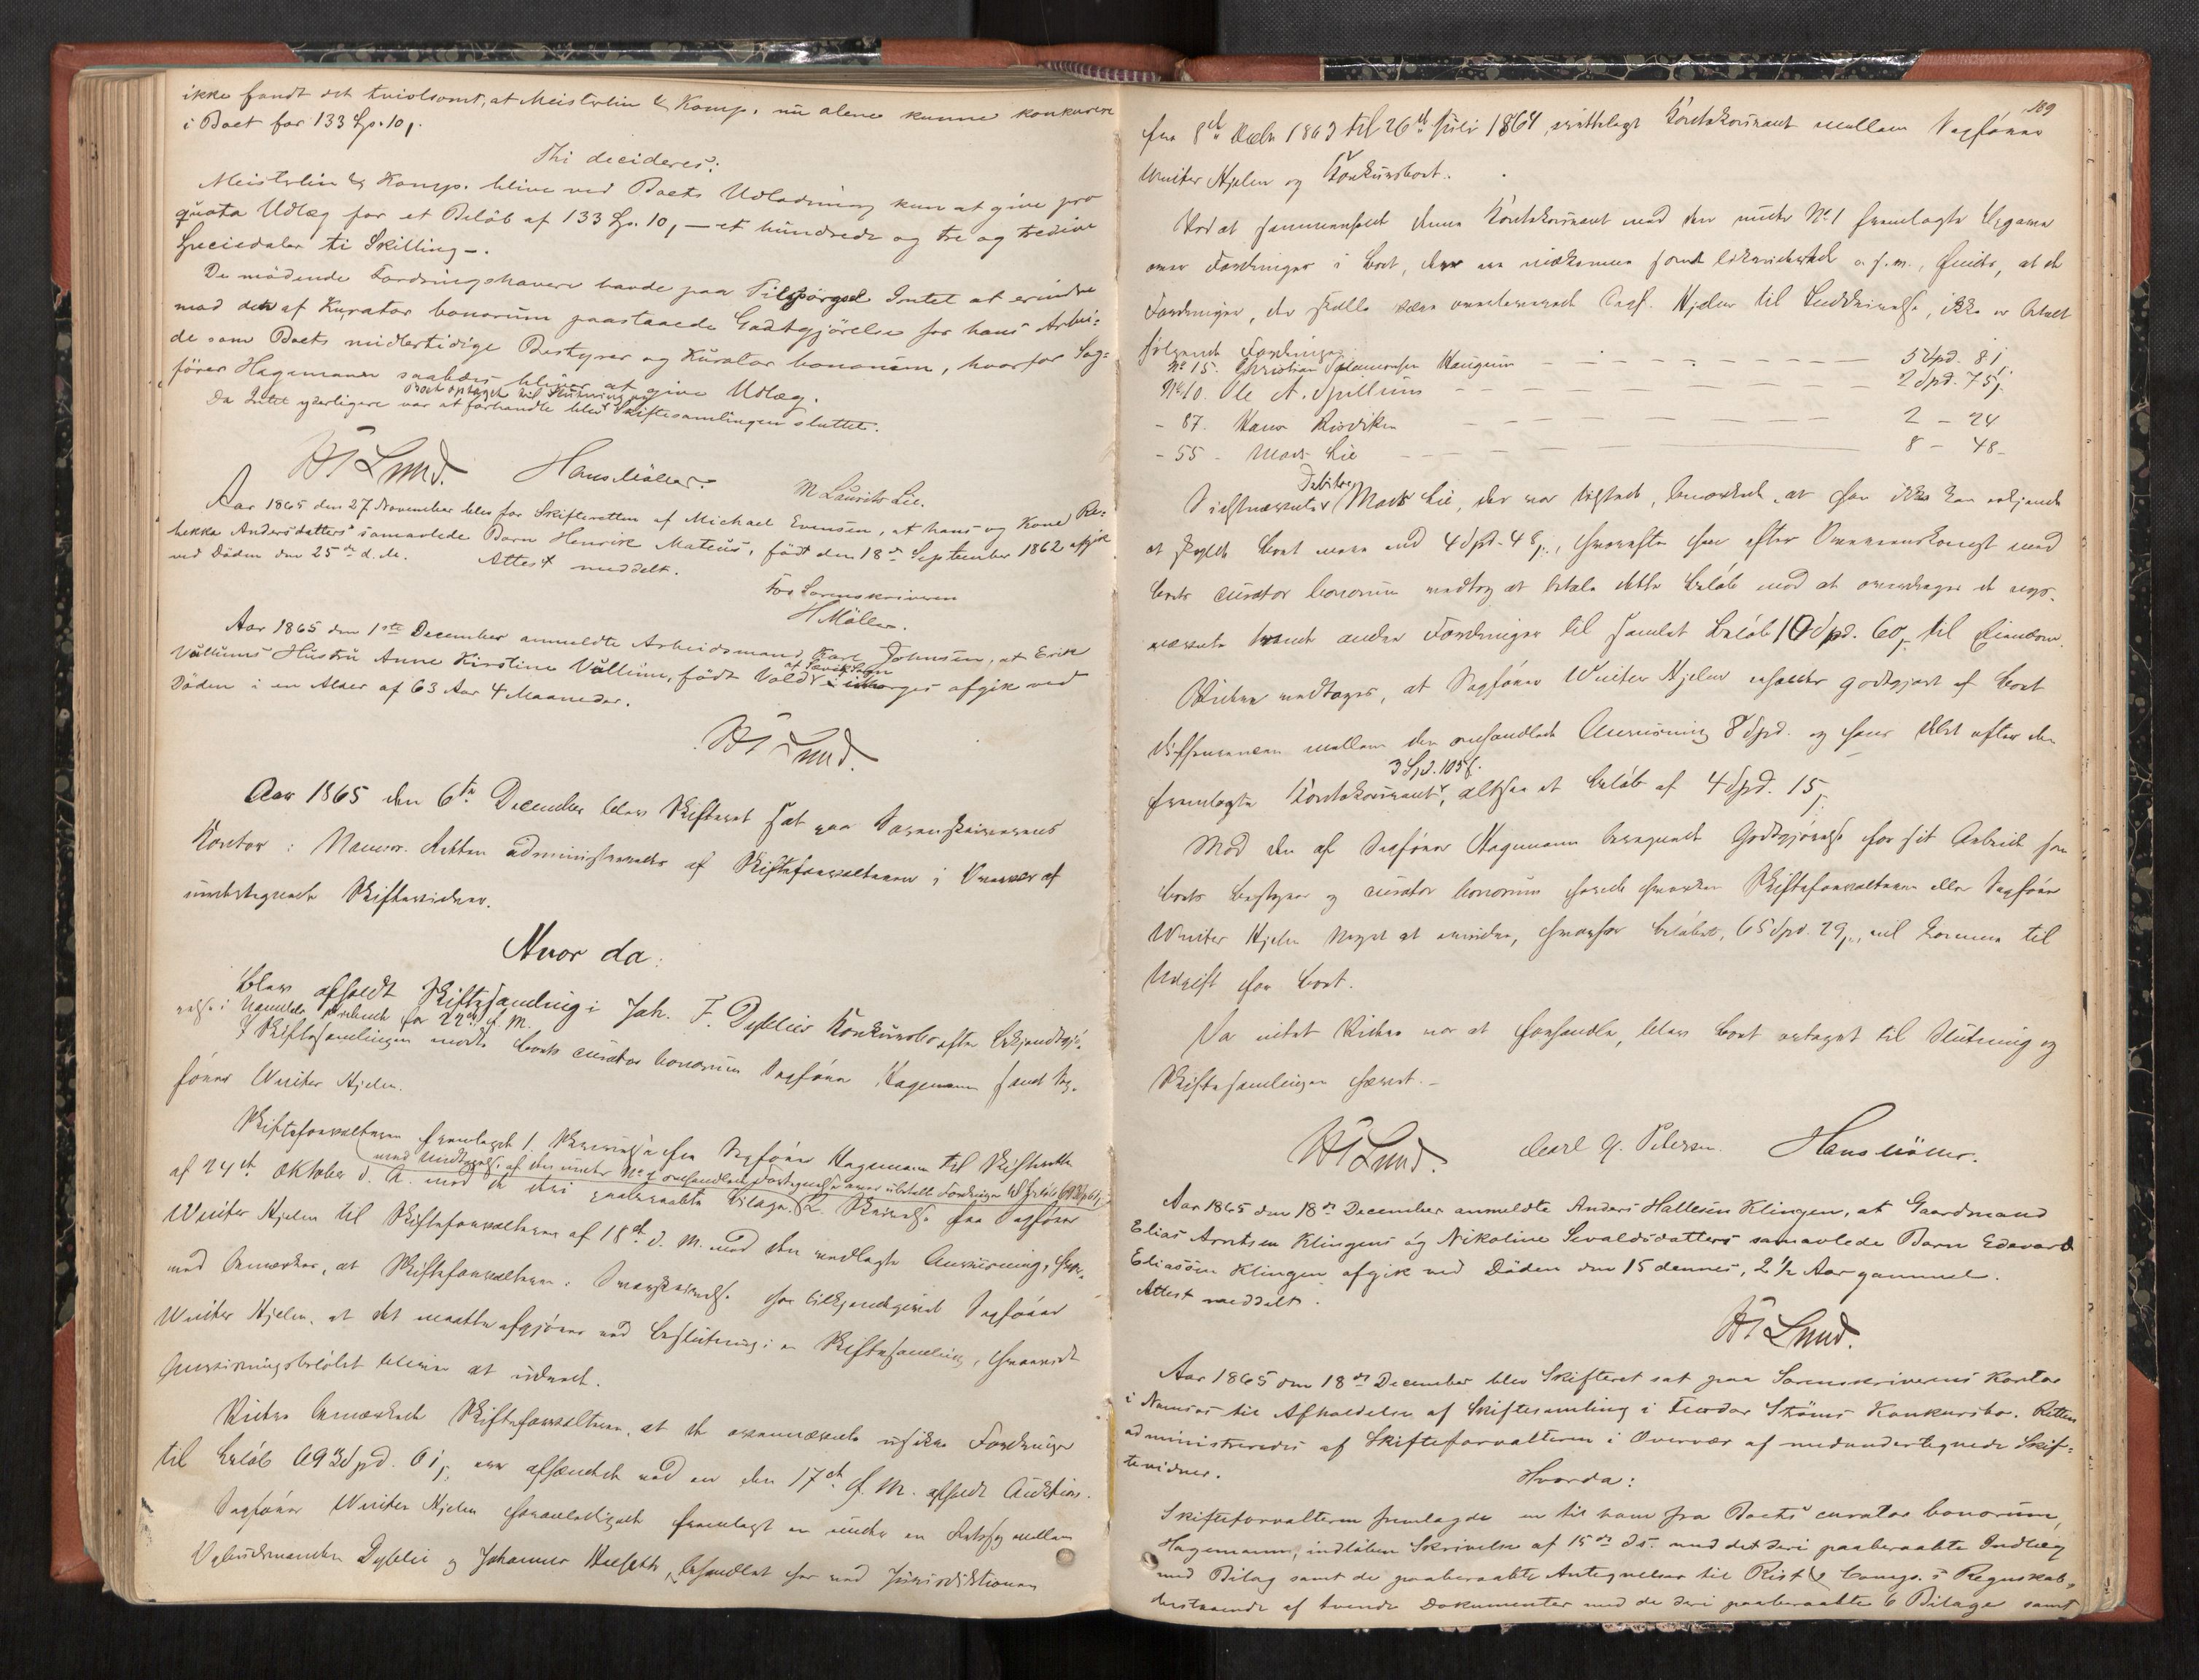 ikke fandt det tvivlsomt, at Meisterlin & Komp. nu alene kunne konkurere
i Boet for 133 Sp. 10 s.
Thi decideres:
Meisterlin & Komp. blive ved Boets Udlodning kun at give pro
quota Udlæg for et Beløb af 133 Sp. 10 s — et hundrede og tre og tredive
Speciedaler ti Skilling —.
De mødende Fordringshavere havde paa Tilspørgsel Intet at erindre
mod den af Kurator bonorum paastaaede Godtgjørelse for hans Arbei:
de som Boets midlertidige Bestyrer og Kurator bonorum, hvorfor Sag:
fører Hagemann saaledes bliver at give Udlæg.
Boet optaget til Slutning og
Da Intet yderligere var at forhandle blev Skiftesamlingen sluttet.
Lund. Hans Möller. M Laurits Lie.
Aar 1865 den 27 November blev for Skifteretten af Michael Evensen, at hans og Kone Re:
bekka Andersdatters samavlede Barn Henrik Mateus, født den 18de September 1862 afgik
ved Döden den 25de d.M. Attest meddelt.
For Sorenskriveren
H Möller.
Aar 1865 den 1ste December anmeldte Arbeidsmand Karl Johnsen, at Erik
Vålliums Hustru Anne Kirstine Vållium, født Vold afgik ved
Döden i en Alder af 63 Aar 4 Maaneder.
Lund.
Aar 1865 den 6te December blev Skifteret sat paa Sorenskriverens
Kontor i Namsos. Retten administreredes af Skifteforvalteren i Overvær af
undertegnede Skiftevidner.
Hvor da:
Blev afholdt Skiftesamling i Joh. F. Dyblies Konkursbo efter Bekjendtgjø-
relse i for 22de f. M.
I Skiftesamlingen mødte Boets curator bonorum Sagfører Hagemann samt Sag-
fører Winter Hjelm.
Skifteforvalteren fremlagde 1. Skrivelse fra Sagfører Hagemann til Skifteretten
med Undtagelse af den under No 4 omhandlede Fortegnelse over ubetalte Fordringer
af 24de Oktober d. A. med de deri paaberaabte Bilage. 2. Skrivelse fra Sagfører
Winter Hjelm til Skifteforvalteren af 18de d. M. med den vedlagte Anvisning,
med Bemærkn. at Skifteforvalteren i Svarskrivelse har tilkjendegivet Sagfører
Winter Hjelm, at det maatte afgjøres ved Beslutning i en Skiftesamling, hvorvidt
Anvisningsbeløbet bliver at udrede.
Videre bemærkede Skifteforvalteren, at de ovennævnte usikre Fordringer
til Beløb 693 Spd. 61 s. var afhændet ved en den 17de f. M. afholdt Auktion.
Sagfører Winter Hjelm foranledigede fremlagt en under en Retssag mellem
Dyblie og Johannes behandlet her ved Jurisdiktionen
109
fra 8de Decbr 1863 til 26de Juli 1864, Kontokourant mellem Sagfører
Winter Hjelm og Konkursboet.
Ved at sammenholde denne Kontokourant med den under No 1 fremlagte Opgave
over Fordringer i Boet, der ere indkomne samt likviderede o.s.v., findes, at de
Fordringer, der skulle være overleverede Sagf. Hjelm til Inddrivelse, ikke er betalt
følgende Fordringer
No 15. Christian Salamonsen Haugum — 5 Spd. 81.
No 10. Ole A. Spillum — 2 Spd. 75 s.
- 87. Hans Rosviken — 2 - 24
- 55 - Mads Lie — 8 - 48 -
Debitor
Sidstnævnte Mads Lie, der var tilstede, bemærkede, at han ikke kan vedkjende
at skylde Boet mere end 4 Spd. 48 s., hvorefter han efter Overenskomst med
Boets curator bonorum vedtog at betale dette Beløb mod at overdrages de oven-
nævnte tvende andre Fordringer til samlet Beløb 10 Spd. 60 s. til Eiendom.
Videre vedtages, at Sagfører Winter Hjelm erholder godtgjort af Boet
Differencen mellem den omhandlede Anvisning 8 Spd. og hans Debet efter den
3 Spd. 105 s.
fremlagte Kontokourant, altsaa et Beløb af 4 Spd. 15 s.
Mod den af Sagfører Hagemann beregnede Godtgjørelse for sit Arbeide som
Boets Bestyrer og curator bonorum havde hverken Skifteforvalteren eller Sagfører
Winter Hjelm Noget at erindre, hvorfor Beløbet, 65 Spd. 29 s., vil komme til
Udgift for Boet.
Da intet Videre var at forhandle, blev Boet optaget til Slutning og
Skiftesamlingen hævet. —
Lund. Carl G. Petersen. Hans Möller.
Aar 1865 den 18de December anmeldte Anders Hallesen Klingen, at Gaardmand
Elias Arntsen Klingens og Nikoline Sevaldsdatters samavlede Barn Edevard
Eliassen Klingen afgik ved Döden den 15 dennes, 2 1/2 Aar gammel.
Attest meddelt.
Lund.
Aar 1865 den 18de December blev Skifteret sat paa Sorenskriverens Kontor
i Namsos til Afholdelse af Skiftesamling i Feodor Strøms Konkursbo. Retten
administreredes af Skifteforvalteren i Overvær af medundertegnede Skif:
tevidner.
Hvorda:
Skifteforvalteren fremlagde en til ham fra Boets curator bonorum,
Hagemann, indløben Skrivelse af 15de ds. med det deri paaberaabte Indlæg
med Bilag samt de paaberaabte Antegnelser til Rist & Comp.s Regnskab,
bestaaende af tvende Dokumenter med de deri paaberaabte 6 Bilage samt